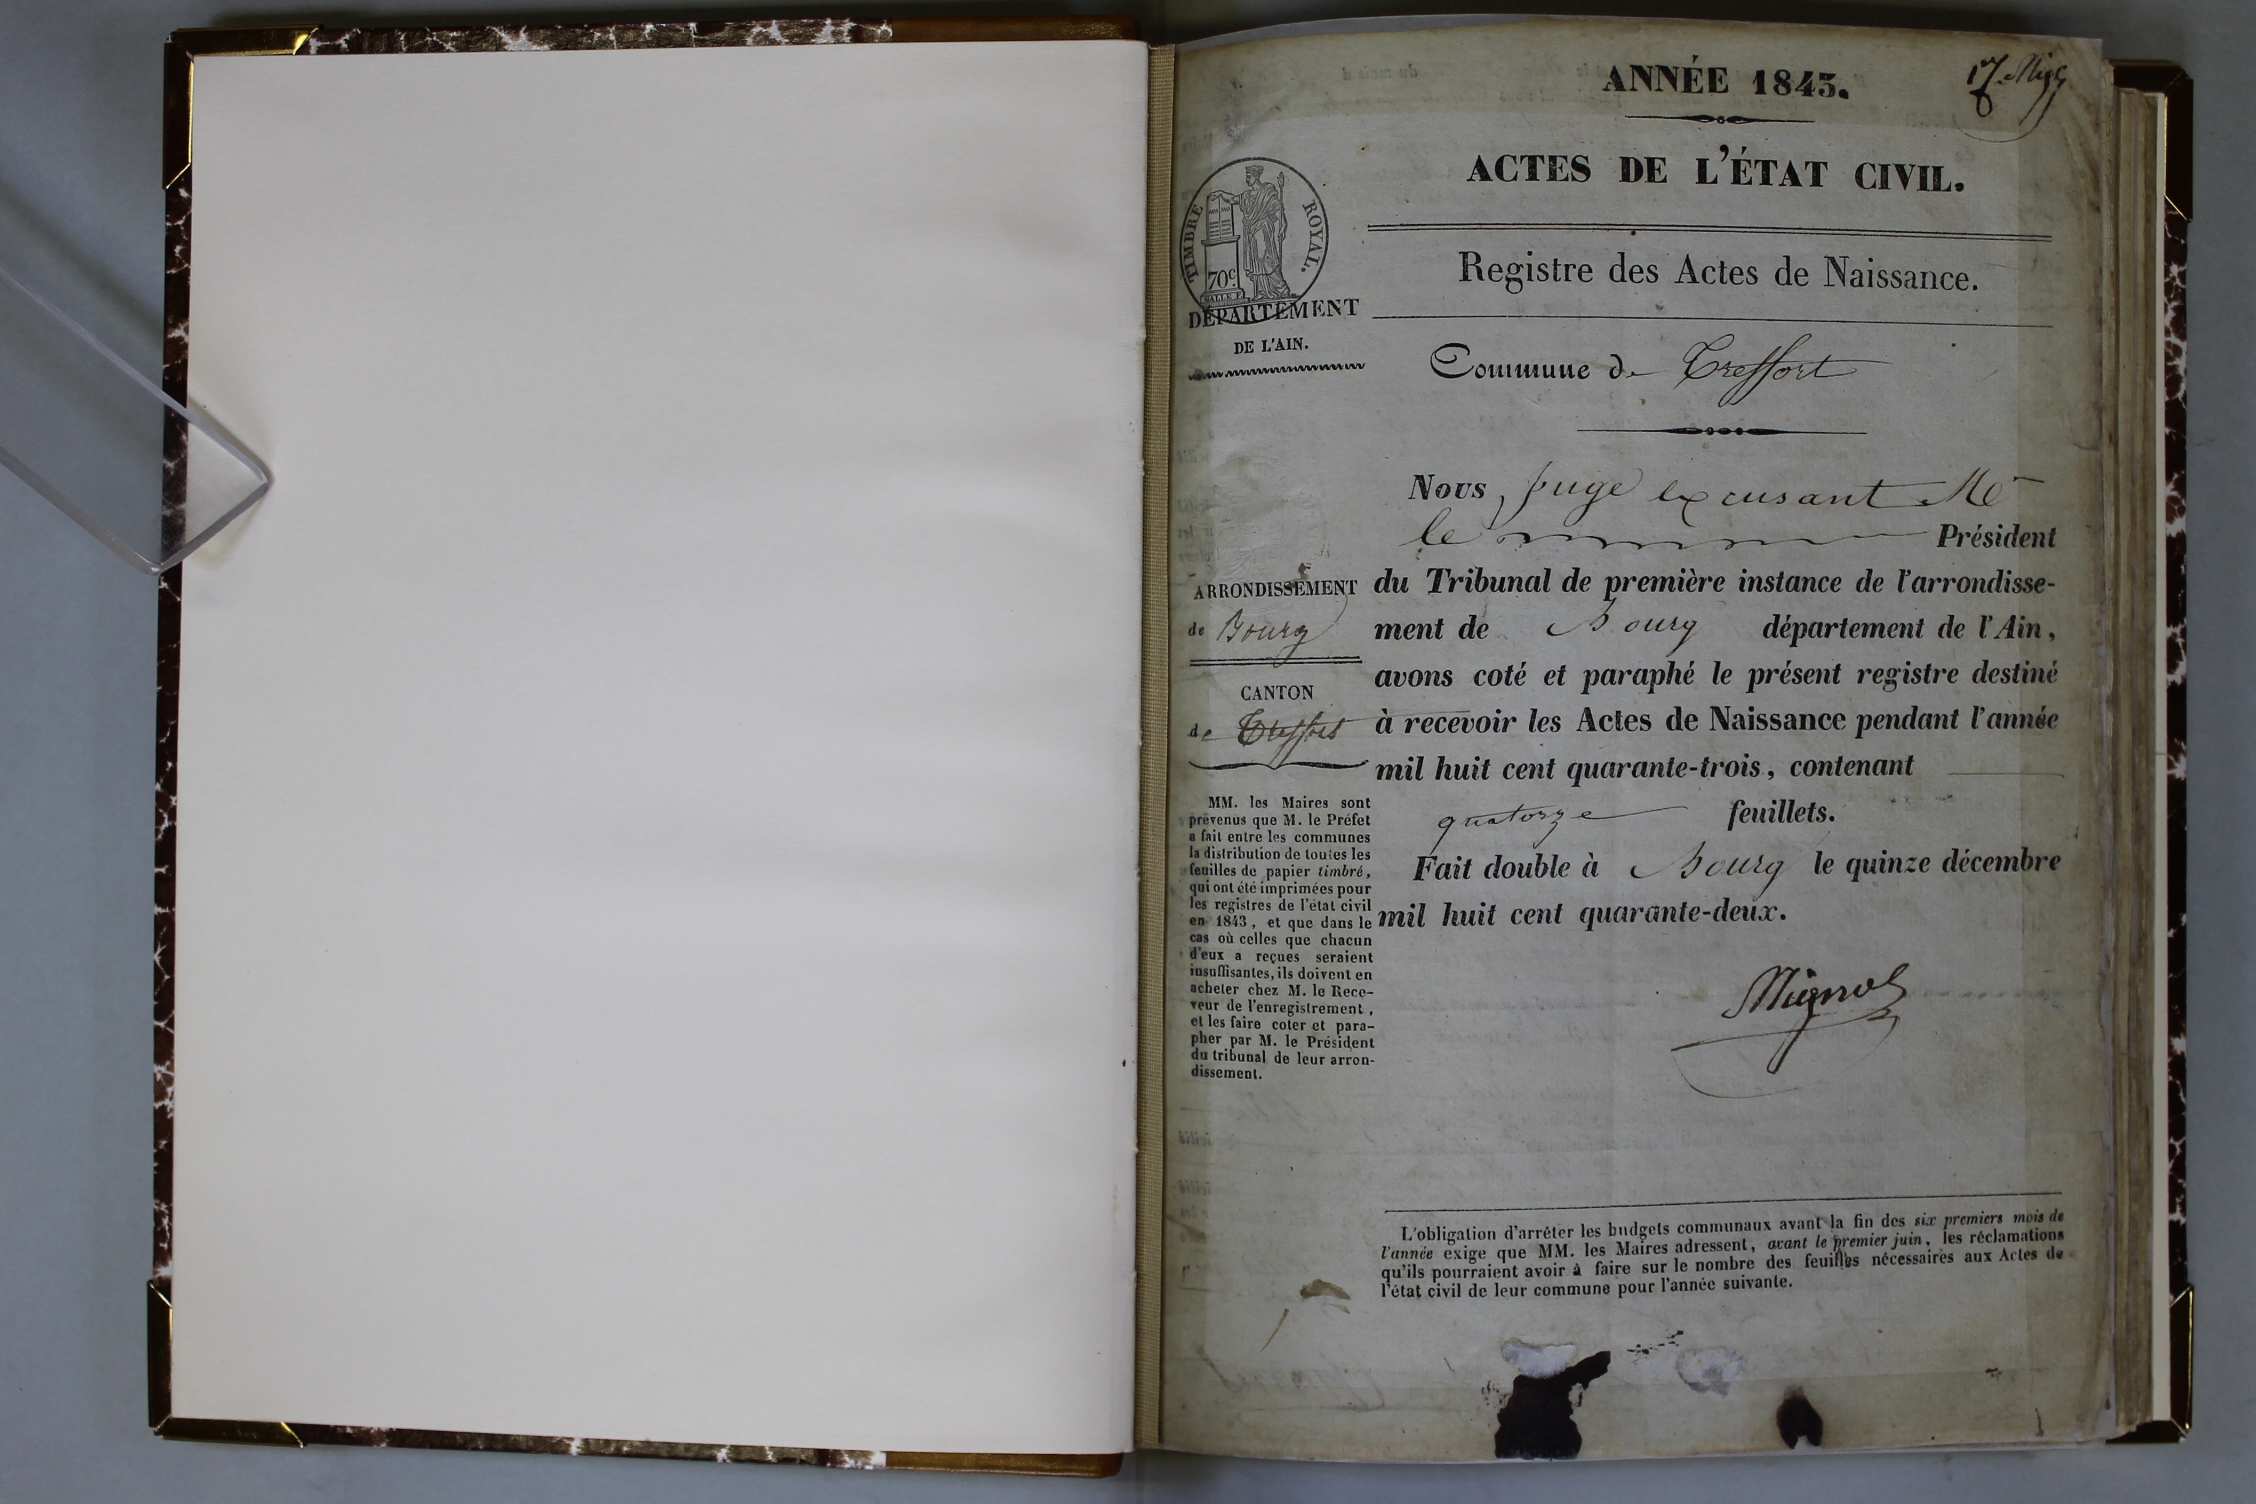 ANNÉE 1843.
ACTES DE L'ÉTAT CIVIL.
TIMBRE ROYAL.
70c.
DÉPARTEMENT
DE L'AIN.
Registre des Actes de Naissance.
Commune de Treffort
ARRONDISSEMENT
de Bourg
CANTON
de Treffort
MM. les Maires sont
prévenus que M. le Préfet
a fait entre les communes
la distribution de toutes les
feuilles de papier timbré,
qui ont été imprimées pour
les registres de l'état civil
en 1843, et que dans le
cas où celles que chacun
d'eux a reçues seraient
insuffisantes, ils doivent en
acheter chez M. le Rece-
veur de l'enregistrement,
et les faire coter et para-
pher par M. le Président
du tribunal de leur arron-
dissement.
Nous, juge excusant Mr
le Président
du Tribunal de première instance de l'arrondisse-
ment de Bourg département de l'Ain,
avons coté et paraphé le présent registre destiné
à recevoir les Actes de Naissance pendant l'année
mil huit cent quarante-trois, contenant
quatorze feuillets.
Fait double à Bourg le quinze décembre
mil huit cent quarante-deux.
L'obligation d'arrêter les budgets communaux avant la fin des six premiers mois de
l'année exige que MM. les Maires adressent, avant le premier juin, les réclamations
qu'ils pourraient avoir à faire sur le nombre des feuilles nécessaires aux Actes de
l'état civil de leur commune pour l'année suivante.